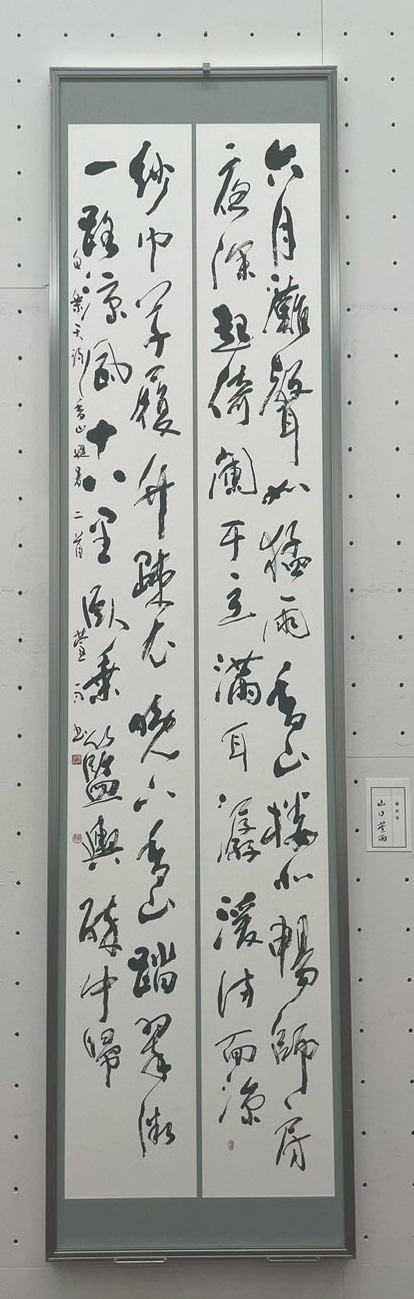 六月灘聲如猛雨香山樓北暢師房
夜深起倚闌干立滿耳潺湲滿面涼
紗巾草履竹疎衣晚下香山踏翠微
一路涼風十八里臥乘籃輿睡中歸
白樂天詩香山避暑二首 萱雨書
山口萱雨